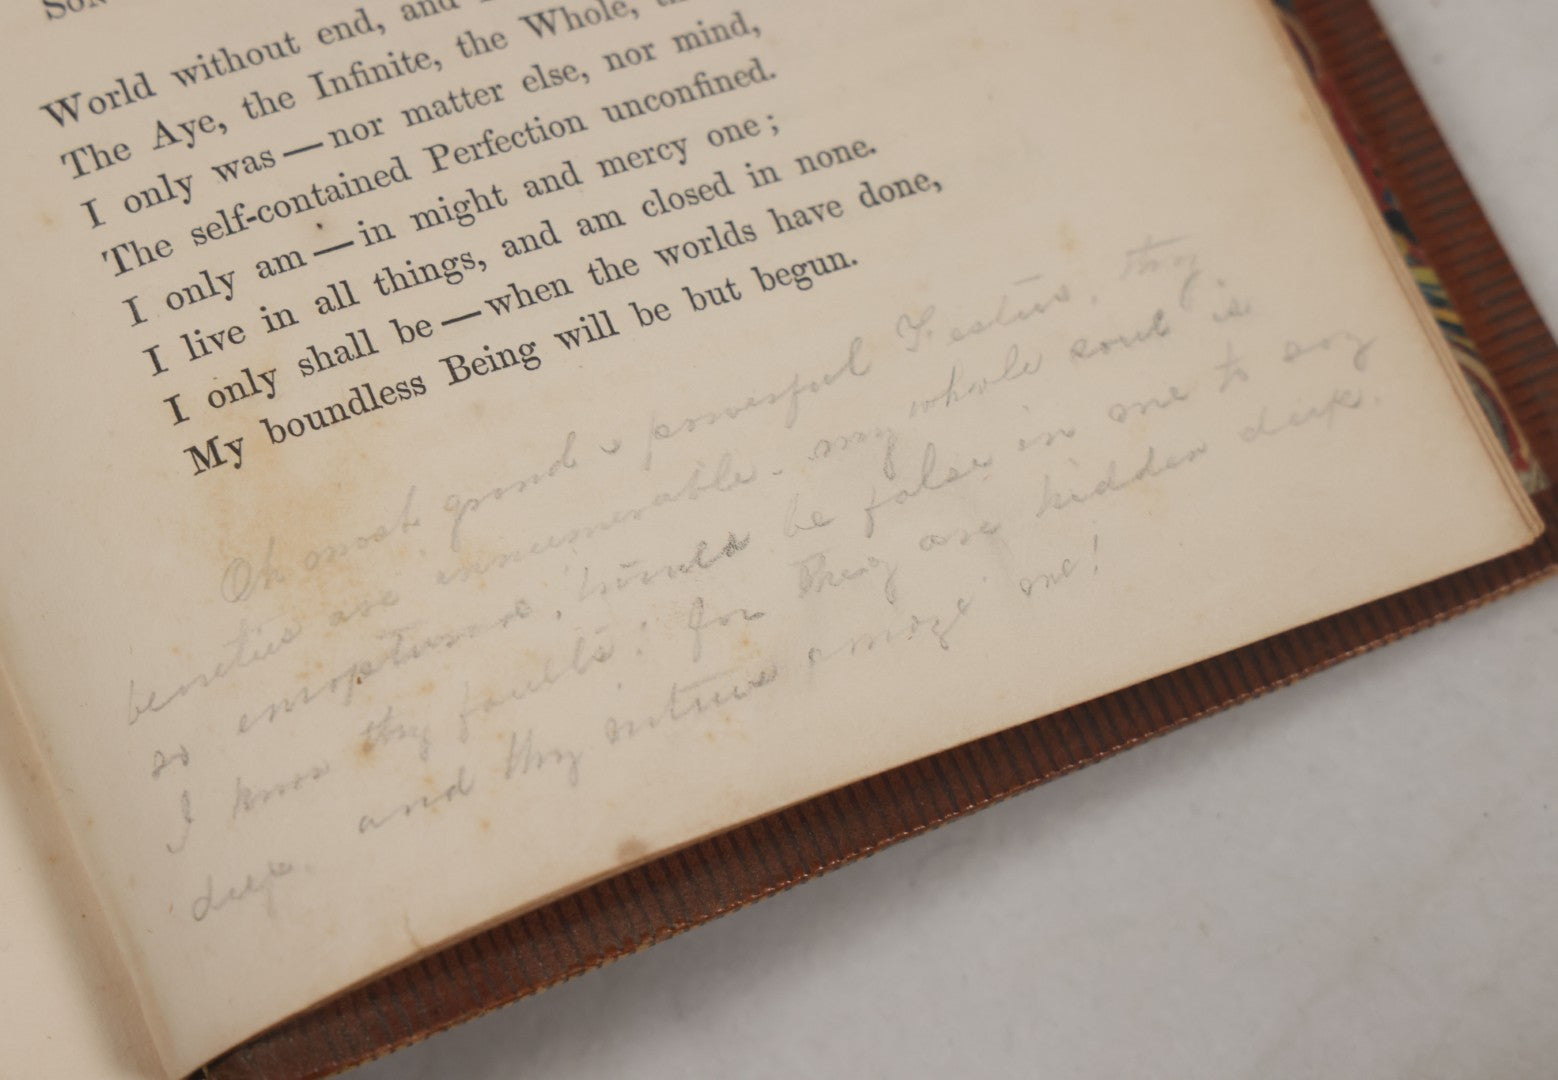 World without end, and
The Aye, the Infinite, the Whole,
I only was — nor matter else, nor mind,
The self-contained Perfection unconfined.
I only am — in might and mercy one;
I live in all things, and am closed in none.
I only shall be — when the worlds have done,
My boundless Being will be but begun.
Oh most grand & powerful Festus, thy
beauties are innumerable - my whole soul is
so enraptured, 'twould be false in me to say
I know thy faults! for they are hidden deep.
deep. and thy virtues amaze me!